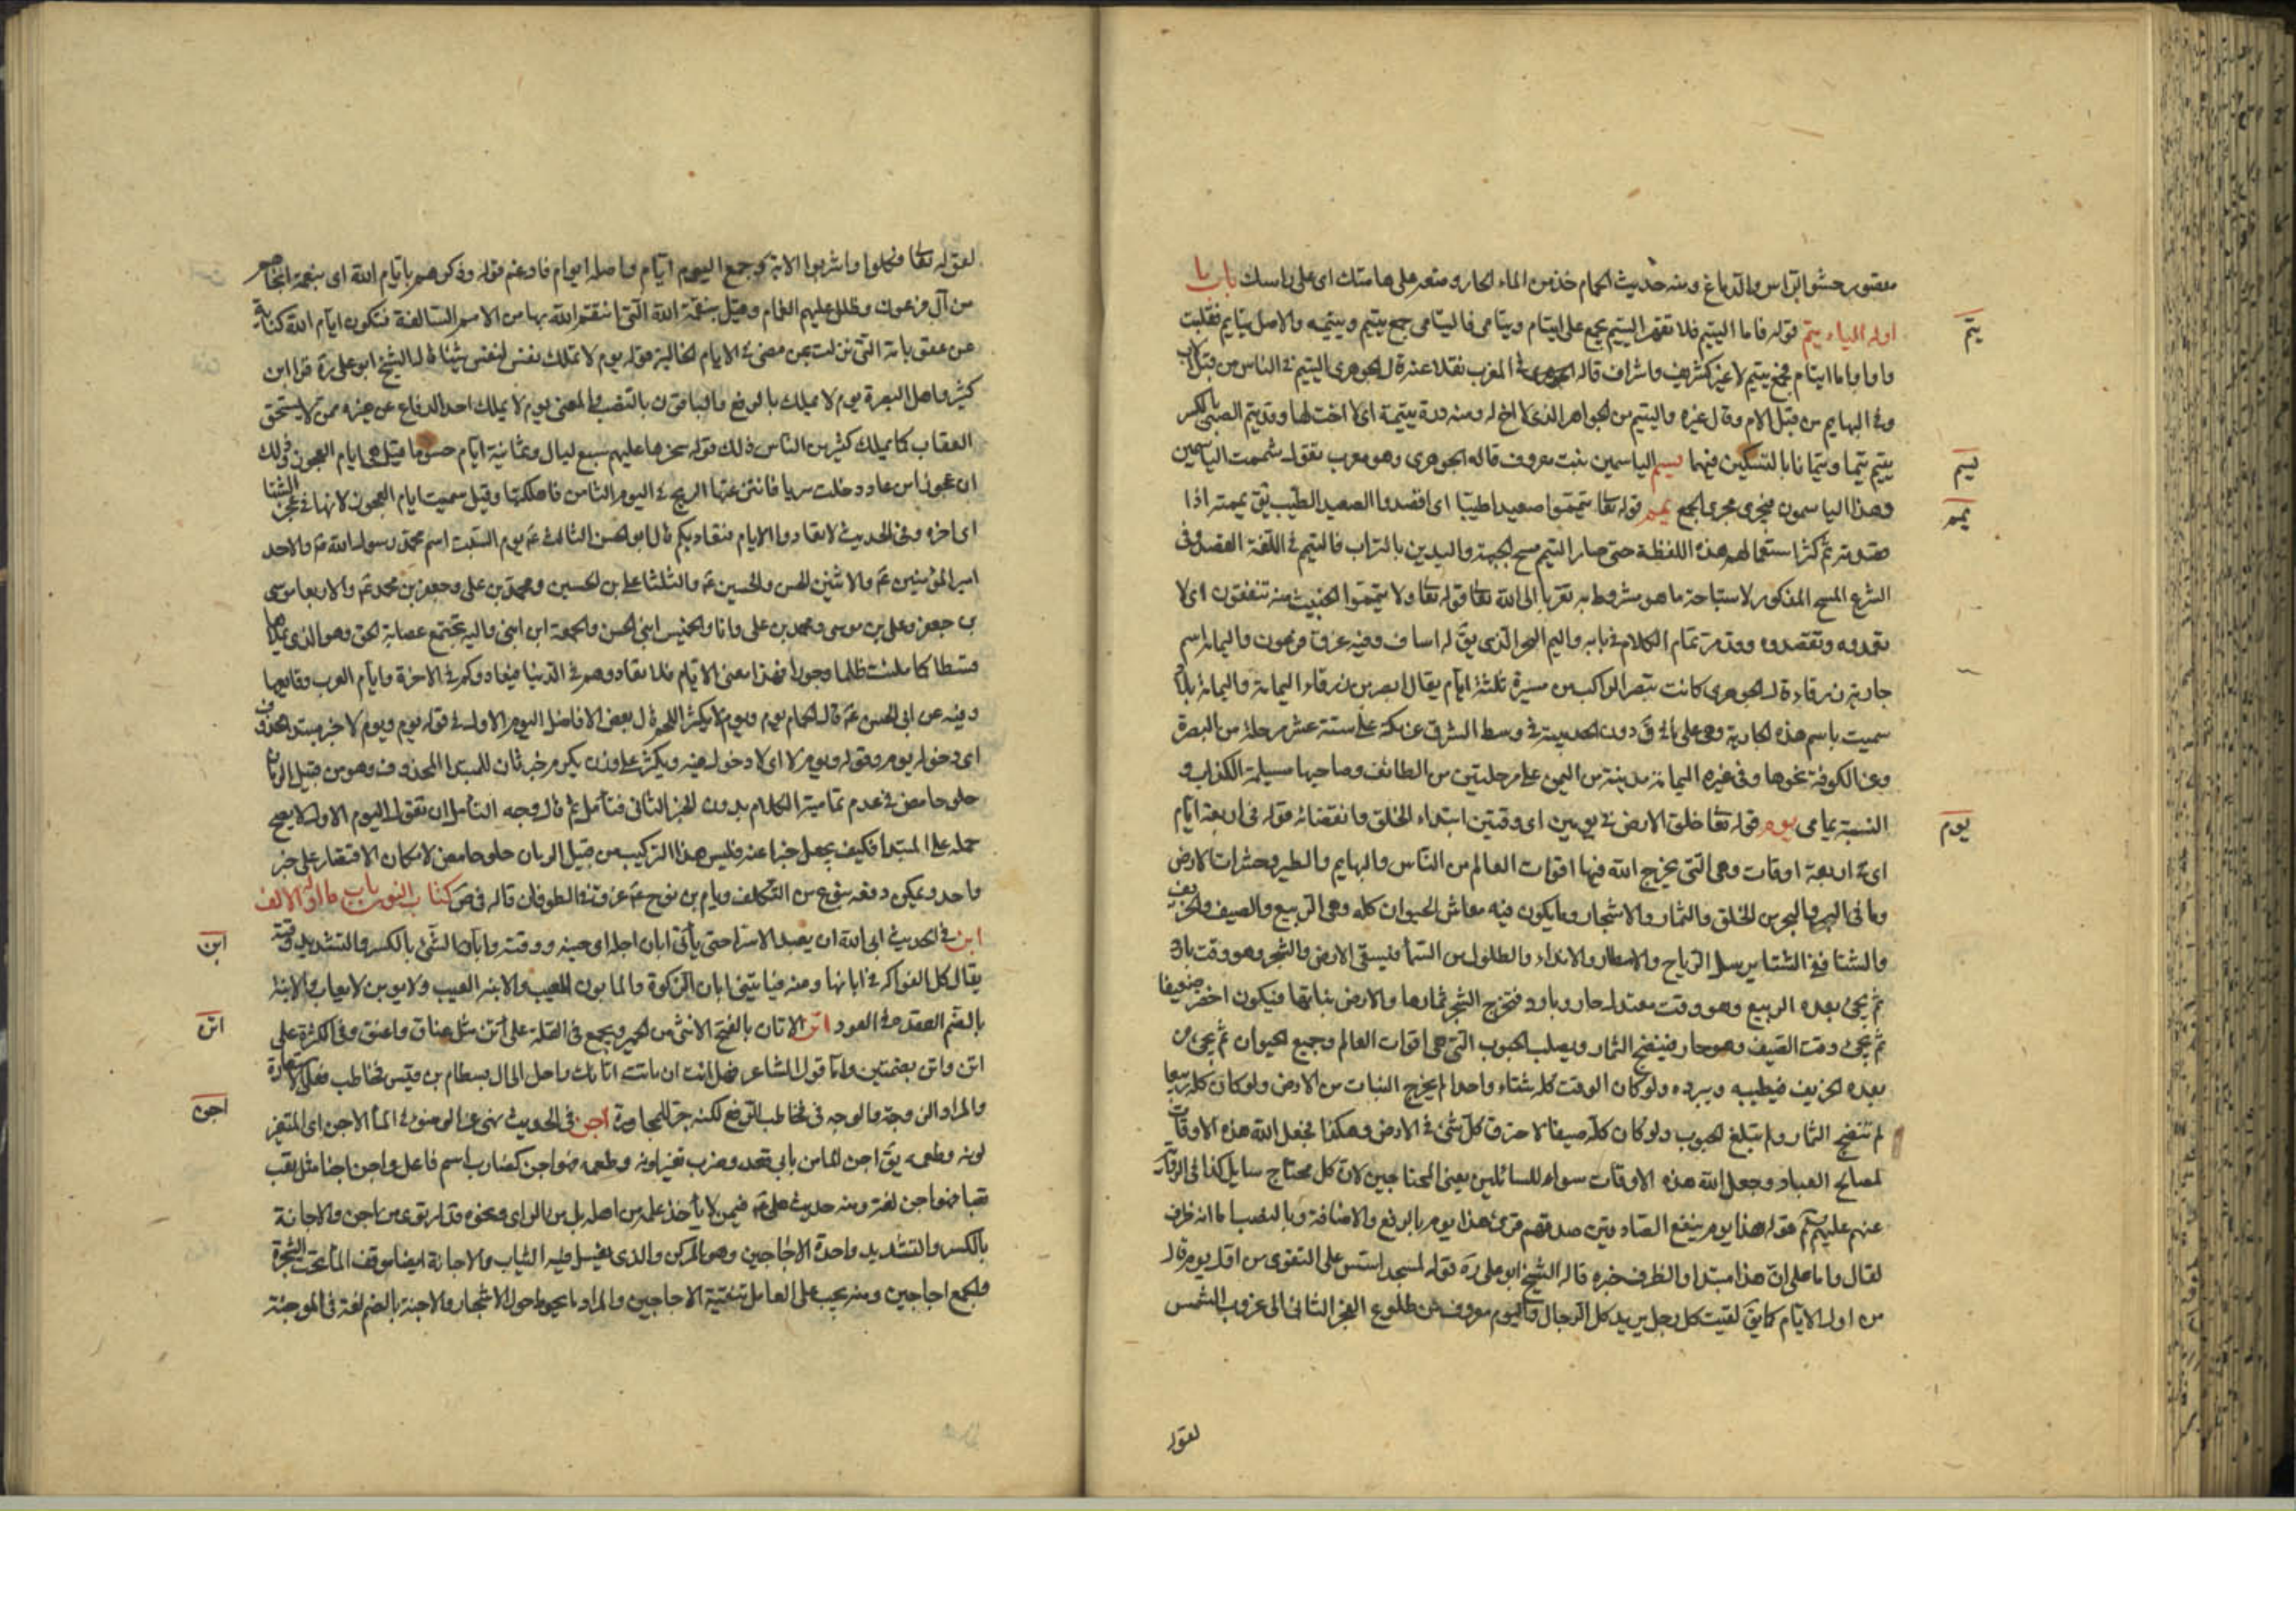 معتوس حشو الراس والدماغ ومنه حديث الحمام خذ من الماء الحار وضعه على هامتك اى على راسك باب ما
اوله الياء يتم قوله فاما اليتيم فلا تقهر اليتيم يجمع على ايتام ويتامى فاليتامى جمع يتيم ويتيمه والاصل يتايم فقلبت
يتم
واما ايتام فجمع يتيم لا غير كشريف واشراف قاله الجوهرى فى المغرب نقلا عنه قال الجوهرى اليتيم فى الناس من قبل الاب
وفى البهايم من قبل الام وقال غيره واليتيم من الجواهر الذى لا اخ له ومنه درة يتيمة اى لا اخت لها وقد يتم الصبى بالكسر
ييتم يتما ويتما بالتسكين فيهما يسم الياسمين نبت معروف قاله الجوهرى وهو معرب تقول شممت الياسمين
يسم
وهذا الياسمون فيجرى مجرى الجمع يمم قوله تعا فتيمموا صعيدا طيبا اى اقصدوا الصعيد الطيب يق يممته اذا
يمم
قصدته ثم كثر استعمالهم هذه اللفظة حتى صار التيمم مسح الجبهة واليدين بالتراب فالتيمم فى اللغة القصد وفى
الشرع المسح المذكور لاستباحة ما هو مشروط به تقربا الى الله تعا قوله تعا ولا تيمموا الخبيث منه تنفقون اى لا
تعمدوه وتقصدوه وقد مر تمام الكلام فى بابه واليم البحر الذى يق له اساف وفيه غرق فرعون واليمامه اسم
جارية زرقاء قال الجوهرى كانت تبصر الراكب من مسيرة ثلثة ايام يقال ابصر من زرقاء اليمامة واليمامة بلاد
سميت باسم هذه الجارية وهى على ما فى ق دون المدينة فى وسط الشرق عن مكة على ستة عشر مرحلة من البصرة
وعن الكوفة نحوها وفى غيره اليمامة مدينة من اليمن على مرحلتين من الطائف وصاحبها مسيلمة الكذاب و
النسبة يمامى يوم قوله تعا خلق الارض فى يومين اى وقتين ابتداء الخلق وانقضائه قوله فى اربعة ايام
يوم
اى فى اربعة اوقات وهى التى يخرج الله فيها اقوات العالم من الناس والبهايم والطير وحشرات الارض
وما فى البر والبحر من الخلق والثمار والاشجار وما يكون فيه معاش الحيوان كله وهى الربيع والصيف والخريف
والشتا ففى الشتا يرسل الرياح والامطار والانداء والطلول من السما فيسقى الارض والشجر وهو وقت بارد
ثم يجئ بعده الربيع وهو وقت معتدل حار وبارد فتخرج الشجر ثمارها والارض نباتها فيكون اخضر ضعيفا
ثم يجئ وقت الصيف وهو حار فينضج الثمار ويصلب الحبوب التى هى اقوات العالم وجميع الحيوان ثم يجئ من
بعده الخريف فيطيبه ويبرده ولو كان الوقت كله شتاء واحدا لم يخرج النبات من الارض ولو كان كله ربيعا
لم تنضج الثمار ولم تبلغ الحبوب ولو كان كله صيفا لاحترق كل شئ فى الارض وهكذا فجعل الله هذه الاوقات
لمصالح العباد وجعل الله هذه الاوقات سواء للسائلين يعنى المحتاجين لان كل محتاج سايل كذا فى الرواية
عنهم عليهم قوله هذا يوم ينفع الصادقين صدقهم قرئ هذا يوم بالرفع والاضافة وبالنصب اما انه ظرف
لقال واما على ان هذا مبتدا والظرف خبره قاله الشيخ ابو على ره قوله لمسجد اسس على التقوى من اول يوم قال
من اول الايام كما يق لقيت كل رجل يريد كل الرجال واليوم معروف من طلوع الفجر الثانى الى غروب الشمس
لقوله
لقوله تعا وكلوا واشربوا الاية وجمع اليوم ايام واصله ايوام فادغم قوله وذكرهم بايام الله اى بنعمه
من آل فرعون وظلل عليهم الغمام وقيل بنقمة الله التى انتقم الله بها من الامم السالفة فتكون ايام الله كناية
عن عقوباته التى نزلت بمن مضى فى الايام الخالية قوله يوم لا تملك نفس لنفس شيئا قال الشيخ ابو على ره قرا ابن
كثير واهل البصرة يوم لا يملك بالرفع والباقون بالنصب والمعنى يوم لا يملك احد الدفاع عن غيره ممن لا يستحق
العقاب كما يملك كثير من الناس ذلك قوله سخرها عليهم سبع ليال وثمانية ايام حسوما قيل هى ايام العجوز وذلك
ان عجوزا من عاد دخلت سربا فانتزعتها الريح فى اليوم الثامن فاهلكتها وقيل سميت ايام العجوز لانها فى عجز الشتا
اى اخره وفى الحديث لا تعادوا الايام فتعاديكم قال ابو الحسن الثالث ع يوم السبت اسم محمد رسول الله ص والاحد
امير المؤمنين ع والاثنين الحسن والحسين ع والثلثا على بن الحسين ومحمد بن على وجعفر بن محمد ع والاربعا موسى
بن جعفر وعلى بن موسى ومحمد بن على وانا والخميس ابنى الحسن والجمعة ابن ابنى واليه تجتمع عصابة الحق وهو الذى يملاها
قسطا كما ملئت ظلما وجورا فهذا معنى الايام فلا تعادوهم فى الدنيا فيعادوكم فى الاخرة وايام العرب وقايعها
وفيه عن ابى الحسن ع قال الحمام يوم ويوم لا يكثر اللحم قال بعض الافاضل اليوم الاول فى قوله يوم ويوم لا خبر مبتدا محذوف
اى دخوله يوم وقوله ويوم لا اى لا دخول فيه ويكثر على وزن يكرم خبر ثان للمبتدا المحذوف وهو من قبيل الرمان
حلو حامض فى عدم تمامية الكلام بدون الخبر الثانى فتامل ثم قال وجه التامل ان تقول اليوم الاول لا يصح
حمله على المبتدا فكيف يجعل خبرا عنه فليس هذا التركيب من قبيل الرمان حلو حامض لامكان الاقتصار على خبر
واحد ويمكن دفعه بنوع من التكلف ويام بن نوح ع غرق فى الطوفان قاله فى ص كتاب النون باب ما اوله الالف
ابن فى الحديث ابى الله ان يعبد الا سرا حتى يأتى ابان اجله اى حينه ووقته وابان الشئ بالكسر والتشديد وقته
ابن
يقال كل الفواكه فى ابانها ومنه فيأتينى ابان الزكوة والمابون المعيب والابنه العيب ولا يوبن لا يعاب والابنة
بالضم العقدة فى العود اتن الاتان بالفتح الانثى من الحمير ويجمع فى القلة على آتن مثل عناق واعنق وفى الكثرة على
اتن
اتن واتن بضمتين
والمراد اجن فى الحديث نهى عن الوضوء فى الما الاجن اى المتغير
اجن
لونه وطعمه يق اجن الما من بابى قعد وضرب تغير لونه وطعمه فهو اجن كضارب اسم فاعل واجن اجنا مثل تعب
تعبا فهو اجن لغة ومنه حديث على ع فيمن لا يأخذ علمه من اهله بل من الراى ونحوه قد ارتوى من اجن والاجانة
بالكسر والتشديد واحدة الاجاجين وهو المركن والذى يغسل فيه الثياب والاجانة ايضا موقف الما تحت الشجرة
والجمع اجاجين ومنه يجب على العامل تنقية الاجاجين والمراد ما يحوط حول الاشجار والاجنة بالضم لغة فى الوجنة